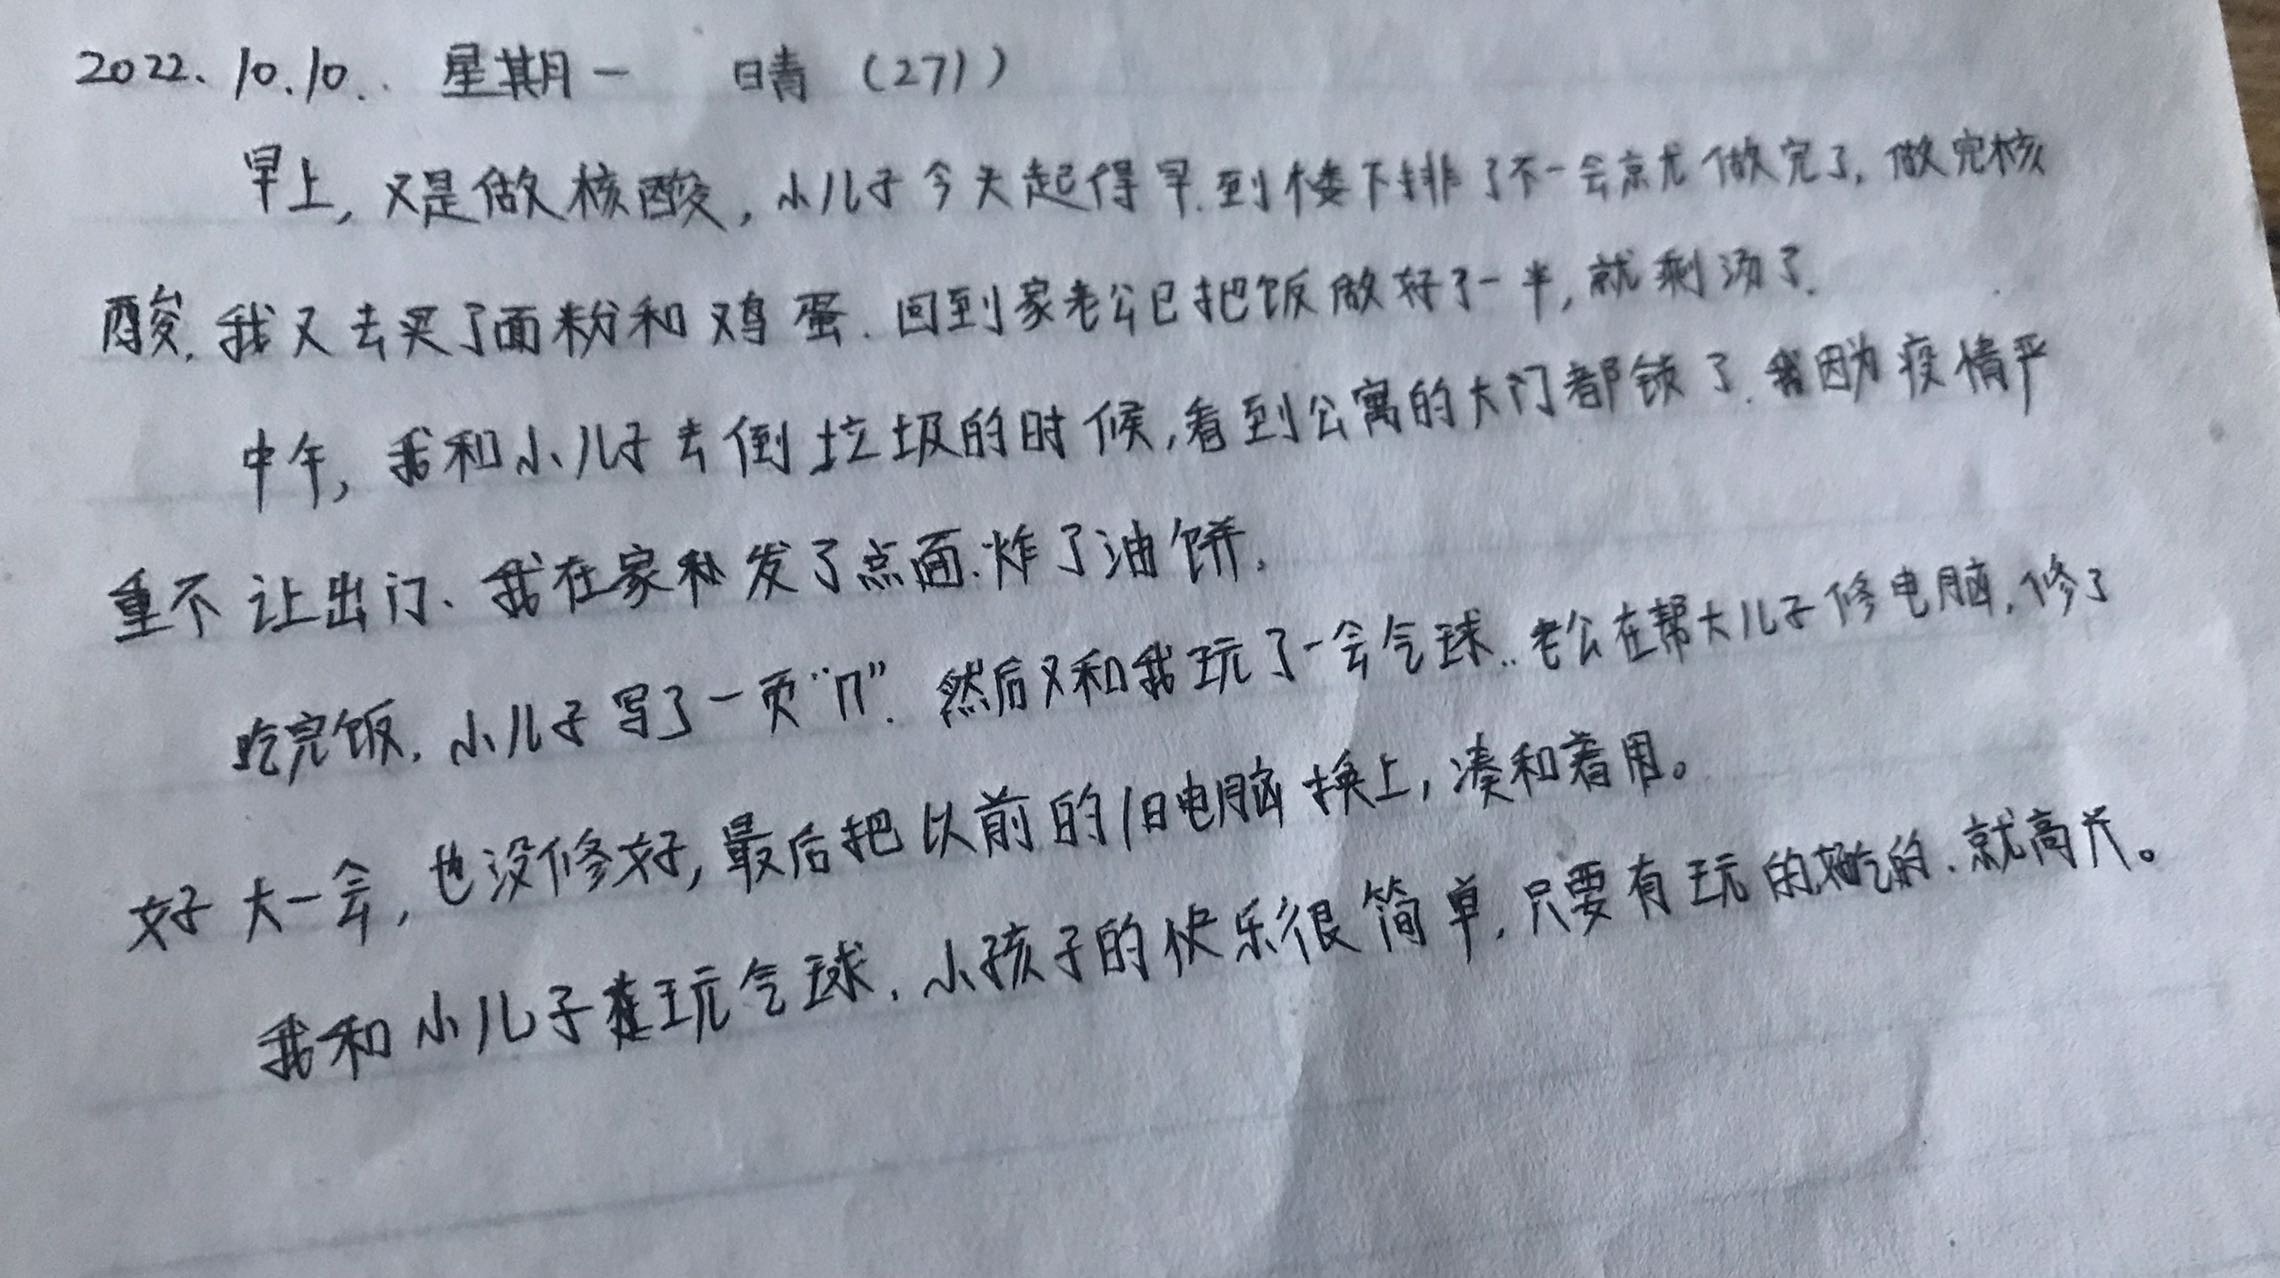 2022.10.10.. 星期一 晴（271）
早上,又是做核酸,小儿子今天起得早.到楼下排了不一会就做完了,做完核
酸,我又去买了面粉和鸡蛋.回到家老公已把饭做好了一半,就剩汤了.
中午,我和小儿子去倒垃圾的时候,看到公寓的大门都锁了.因为疫情严
重不让出门、我在家发了点面.炸了油饼.
吃完饭.小儿子写了一页“n”.然后又和我玩了一会气球..老公在帮大儿子修电脑,修了
好大一会,也没修好,最后把以前的旧电脑换上,凑和着用。
我和小儿子在玩气球.小孩子的快乐很简单.只要有玩的,有吃的.就高兴。